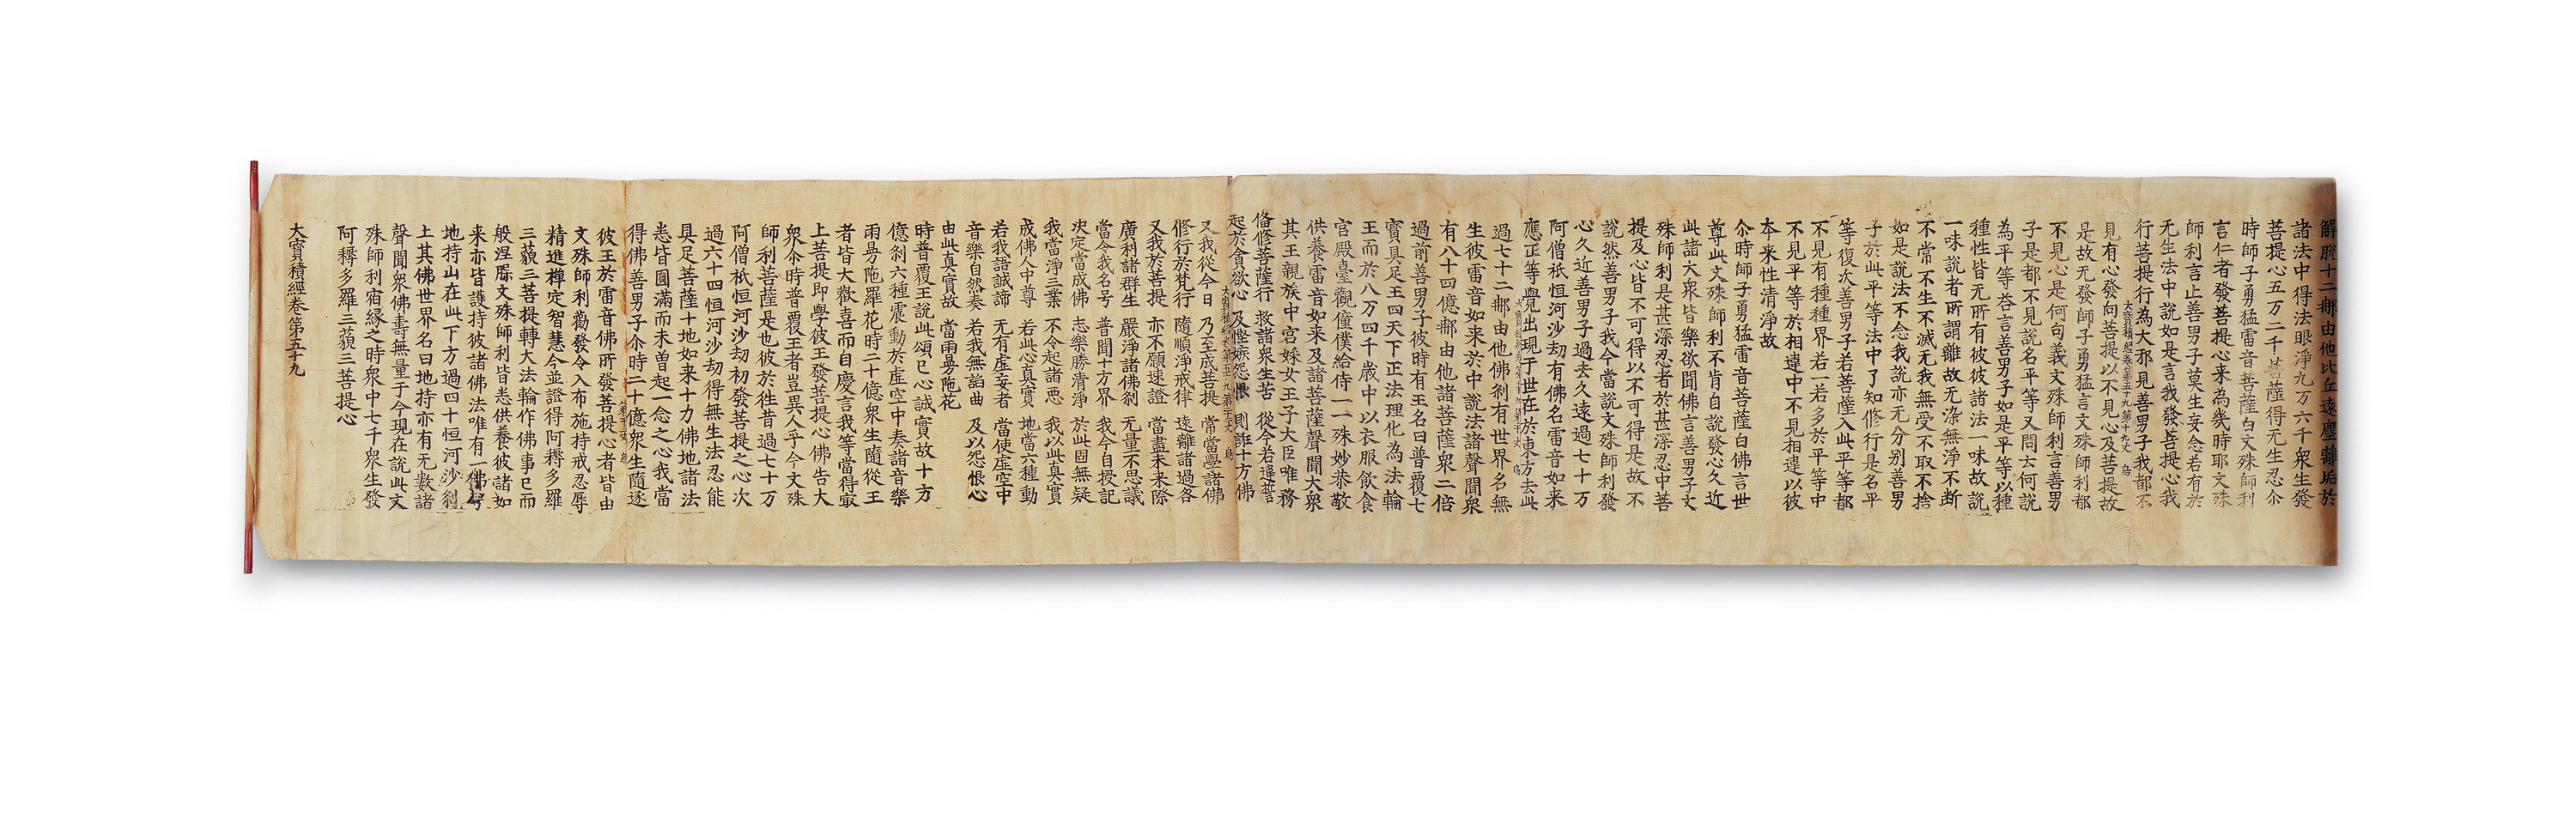 解脫十二那由他比丘遠塵離垢於
諸法中得法眼淨九万六千衆生發
菩提心五万二千菩薩得无生忍尒
時師子勇猛雷音菩薩白文殊師利
言仁者發菩提心来為幾時耶文殊
師利言止善男子莫生妄念若有於
无生法中說如是言我發菩提心我
行菩提行為大邪見善男子我都不
大寶積經卷第五十九 第十九丈 鳥
見有心發向菩提以不見心及菩提故
是故无發師子勇猛言文殊師利都
不見心是何句義文殊師利言善男
子是都不見說名平等又問云何說
為平等荅言善男子如是平等以種
種性皆无所有彼彼諸法一味故說
一味說者所謂離故无染無淨不断
不常不生不滅无我無受不取不捨
如是說法不念我說亦无分别善男
子於此平等法中了知修行是名平
等復次善男子若菩薩入此平等都
不見有種種界若一若多於平等中
不見平等於相違中不見相違以彼
本来性清淨故
尒時師子勇猛雷音菩薩白佛言世
尊此文殊師利不肯自說發心久近
此諸大衆皆樂欲聞佛言善男子文
殊師利是甚深忍者於甚深忍中菩
提及心皆不可得以不可得是故不
說然善男子我今當說文殊師利發
心久近善男子過去久遠過七十万
阿僧祇恒河沙劫有佛名雷音如来
應正等覺出現于世在於東方去此
過七十二那由他佛剎有世界名無
生彼雷音如来於中說法諸聲聞衆
有八十四億那由他諸菩薩衆二倍
過前善男子彼時有王名曰普覆七
寶具足王四天下正法理化為法輪
王而於八万四千歲中以衣服飲食
宮殿臺觀僮僕給侍一一殊妙恭敬
供養雷音如来及諸菩薩聲聞大衆
其王親族中宮婇女王子大臣唯務
俻修菩薩行 救諸衆生苦 從今若違誓
起於貪欲心 及慳嫉怨恨 則誑十方佛
又我從今日 乃至成菩提 常當學諸佛
修行於梵行 隨順淨戒律 遠離諸過各
又我於菩提 亦不願速證 當盡未来際
廣利諸群生 嚴淨諸佛剎 无量不思議
當令我名号 普聞十方界 我今自授記
决定當成佛 志樂勝清淨 於此固無疑
我當淨三業 不令起諸悪 我以此真實
成佛人中尊 若此心真實 地當六種動
若我語誠諦 无有虛妄者 當使虛空中
音樂自然奏 若我無諂曲 及以怨恨心
由此真實故 當雨曼陁花
時普覆王說此頌已心誠實故十方
億剎六種震動於虛空中奏諸音樂
雨曼陁羅花時二十億衆生隨從王
者皆大歡喜而自慶言我等當得㝡
上菩提即學彼王發菩提心佛告大
衆尒時普覆王者豈異人乎今文殊
師利菩薩是也彼於往昔過七十万
阿僧祇恒河沙劫初發菩提之心次
過六十四恒河沙劫得無生法忍能
具足菩薩十地如来十力佛地諸法
悉皆圓滿而未曽起一念之心我當
得佛善男子尒時二十億衆生隨逐
彼王於雷音佛所發菩提心者皆由
文殊師利勸發令入布施持戒忍辱
精進禪定智慧今並證得阿耨多羅
三藐三菩提轉大法輪作佛事已而
般涅槃文殊師利皆悉供養彼諸如
来亦皆護持彼諸佛法唯有一佛号
地持山在此下方過四十恒河沙剎
土其佛世界名曰地持亦有无數諸
聲聞衆佛壽無量于今現在說此文
殊師利宿緣之時衆中七千衆生發
阿耨多羅三藐三菩提心
大寶積經卷第五十九